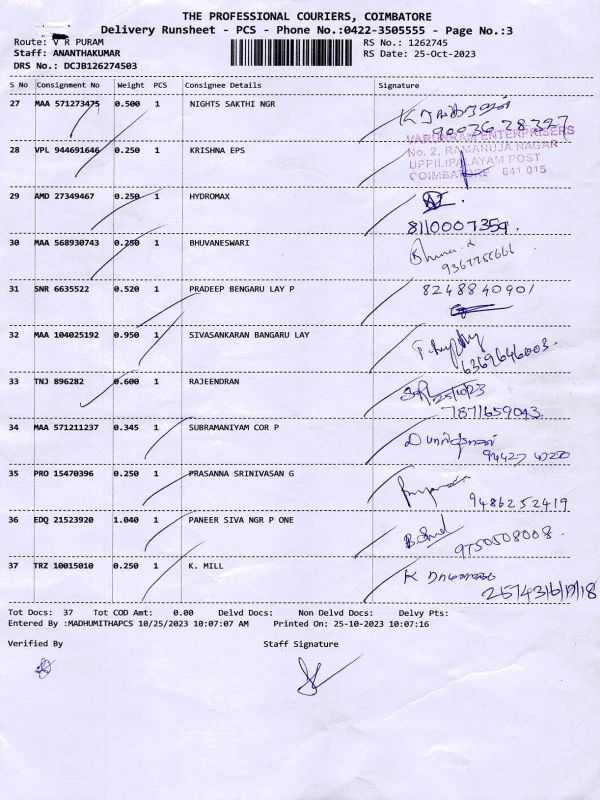 THE PROFESSIONAL COURIERS, COIMBATORE
Delivery Runsheet - PCS - Phone No.:0422-3505555 - Page No.:3
Route: V R PURAM RS No.: 1262745
Staff: ANANTHAKUMAR RS Date: 25-Oct-2023
DRS No.: DCJB126274503
S No Consignment No Weight PCS Consignee Details Signature
27 MAA 571273475 0.500 1 NIGHTS SAKTHI NGR
VARNIRAM ENTERPRISERS
28 VPL 944691646 0.250 1 KRISHNA EPS No. 2, RAMANUJA NAGAR
UPPILIPALAYAM POST
COIMBATORE 641 015
29 AMD 27349467 0.250 1 HYDROMAX
8110007359.
30 MAA 568930743 0.250 1 BHUVANESWARI
31 SNR 6635522 0.520 1 PRADEEP BENGARU LAY P 8248840901
32 MAA 104025192 0.950 1 SIVASANKARAN BANGARU LAY
6369646003.
33 TNJ 896282 0.600 1 RAJEENDRAN 25/10/23
7871659043.
34 MAA 571211237 0.345 1 SUBRAMANIYAM COR P
35 PRO 15470396 0.250 1 PRASANNA SRINIVASAN G
9486252419
36 EDQ 21523920 1.040 1 PANEER SIVA NGR P ONE
9750508008.
37 TRZ 10015010 0.250 1 K. MILL K
Tot Docs: 37 Tot COD Amt: 0.00 Delvd Docs: Non Delvd Docs: Delvy Pts:
Entered By :MADHUMITHAPCS 10/25/2023 10:07:07 AM Printed On: 25-10-2023 10:07:16
Verified By Staff Signature